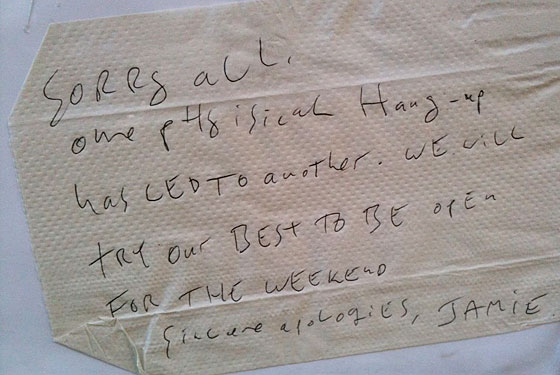 SORRy aLL.
one pHysical Hang-up
has LED TO another. WE will
tRY our BEST TO BE open
FOR THE WEEKEND
Sincere apologies, JAMIE.